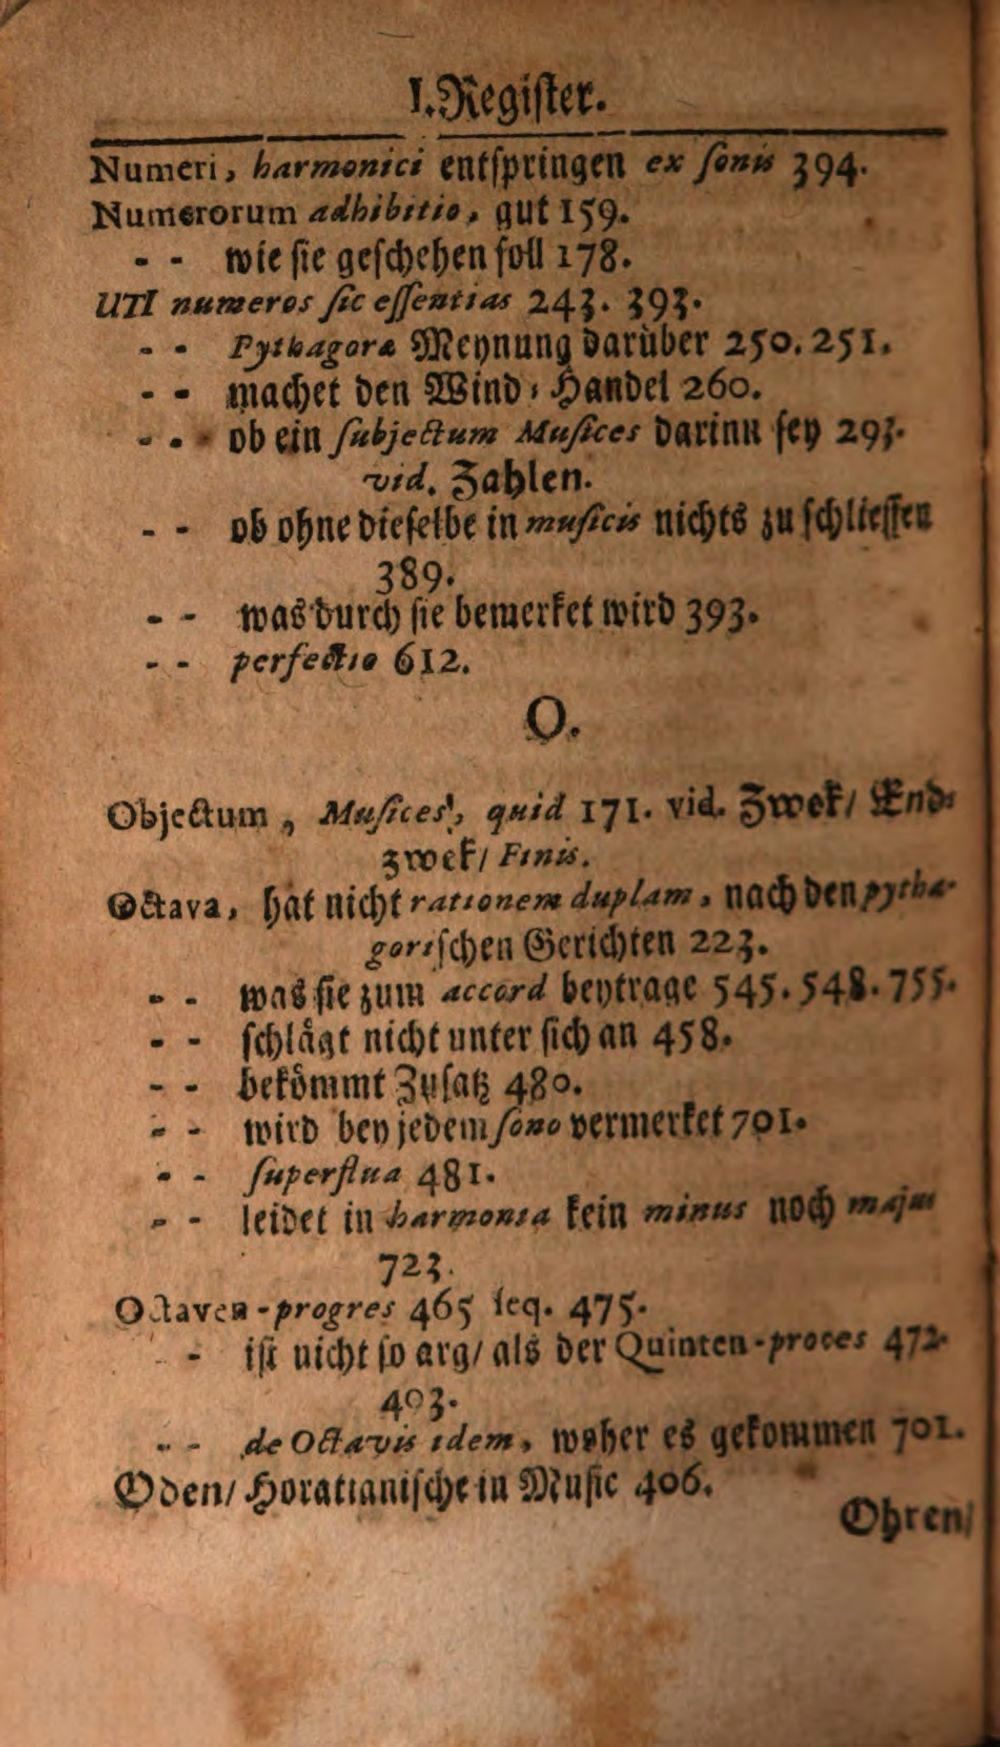 I. Register.
Numeri, harmonici entspringen ex sonis 394.
Numerorum adhibitio, gut 159.
- - wie sie geschehen soll 178.
UTI numeros sic essentias 243. 393.
- - Pythagoræ Meynung darüber 250. 251.
- - machet den Wind-Handel 260.
- - - ob ein subjectum Musices darinn sey 293.
vid. Zahlen.
- - ob ohne dieselbe in musicis nichts zu schliessen
389.
- - was durch sie bemerket wird 393.
- - perfectio 612.
O.
Objectum, Musices, quid 171. vid. Zwek/ End-
zwek/ Finis.
Octava, hat nicht rationem duplam, nach den pytha-
gorischen Gerichten 223.
- - was sie zum accord beytrage 545. 548. 755.
- - schlägt nicht unter sich an 458.
- - bekömmt Zusatz 480.
- - wird bey jedem sono vermerket 701.
- - superflua 481.
- - leidet in harmonia kein minus noch majus
723.
Octaven-progres 465 seq. 475.
- ist nicht so arg/ als der Quinten-proces 472.
403.
- - de Octavis idem, woher es gekommen 701.
Oden/ Horatianische in Music 406.
Ohren/